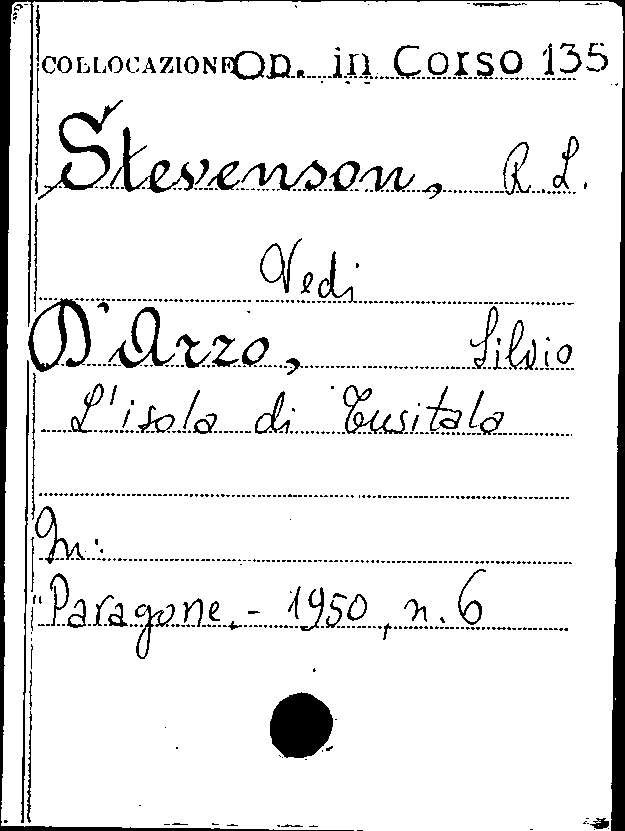 COLLOCAZIONE Op. in Corso 135
Stevenson, R. L.
Vedi
D'Arzo, Silvio
L'isola di Tusitala
In:
"Paragone.- 1950, n. 6